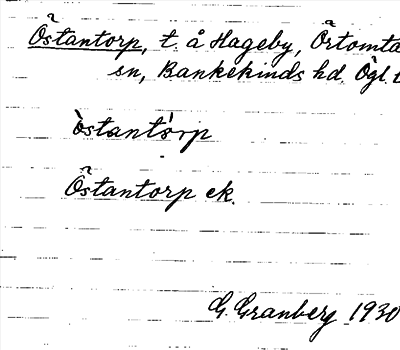 Östantorp, t. å Hageby, Örtomta
sn, Bankekinds hd. Ögl.
östantórp
Östantorp ek.
G. Granberg 1930